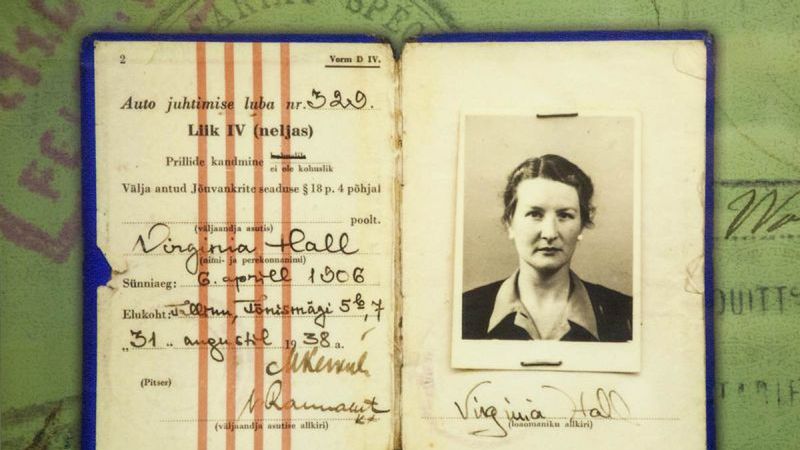 2
Vorm D IV.
Auto juhtimise luba nr. 329.
Liik IV (neljas)
Prillide kandmine kohuslik
ei ole kohuslik
Välja antud Jõuvankrite seaduse § 18 p. 4 põhjal
poolt.
(väljaandja asutis)
Virginia Hall
(nimi- ja perekonnanimi)
Sünniaeg: 6. aprill 1906
Elukoht: Tallinn, Tõnismägi 5b, 7
"31" augustil 1938 a.
(Pitser)
(väljaandja asutise allkiri)
Virginia Hall
(loaomaniku allkiri)